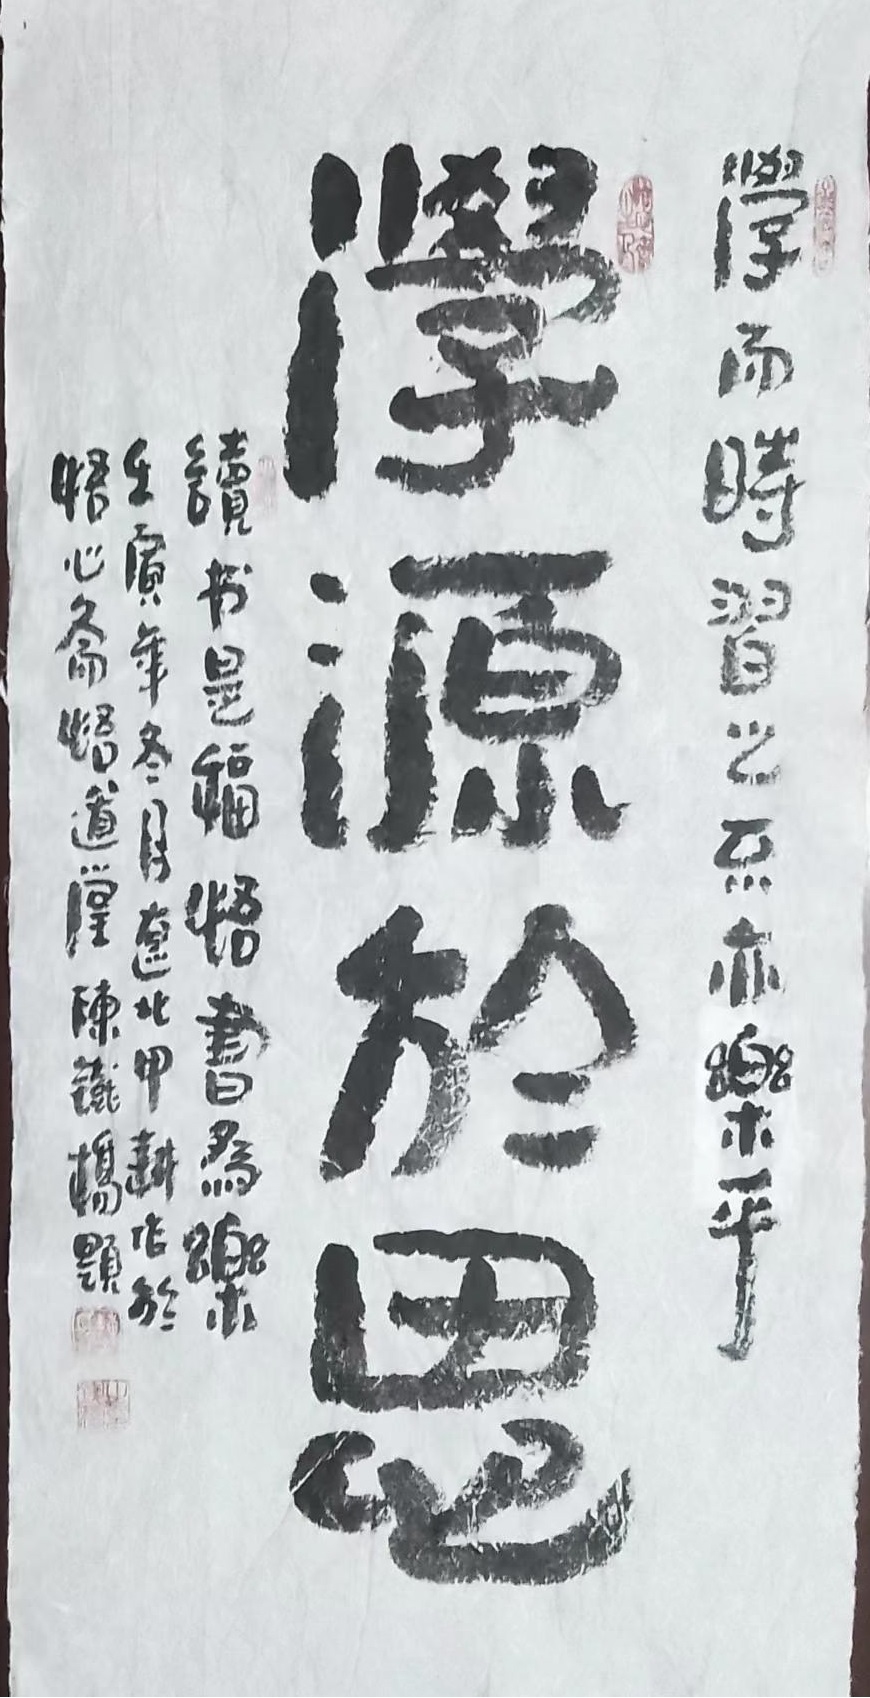 學而時習之不亦樂乎
學源於思
讀书是福悟書為樂
壬寅年冬月遼北甲耕作於
悟心齋悟道堂陳鐵橋題